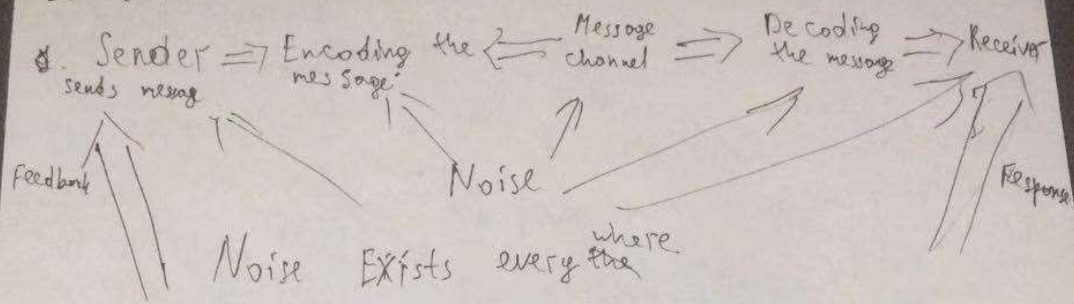 Sender Encoding the message Message channel Decoding the message Receiver
sends messag
Feedback Noise Response
Noise Exists every where